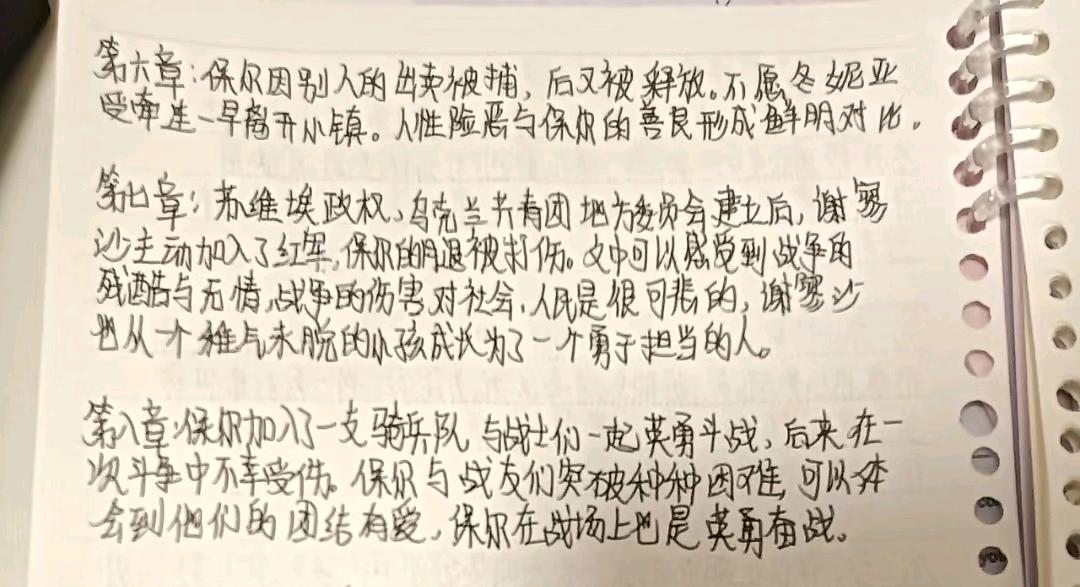 第六章:保尔因别人的出卖被捕,后又被释放。不愿冬妮亚
受牵连一早离开小镇。人性险恶与保尔的善良形成鲜明对比。
第七章:苏维埃政权、乌克兰共青团地方委员会建立后,谢寥
沙主动加入了红军,保尔的腿被打伤。文中可以感受到战争的
残酷与无情,战争的伤害对社会、人民是很可悲的,谢寥沙
也从一个稚气未脱的小孩成长为了一个勇于担当的人。
第八章:保尔加入了一支骑兵队与战士们一起英勇斗战,后来在一
次斗争中不幸受伤。保尔与战友们突破种种困难,可以体
会到他们的团结有爱,保尔在战场上也是英勇奋战。